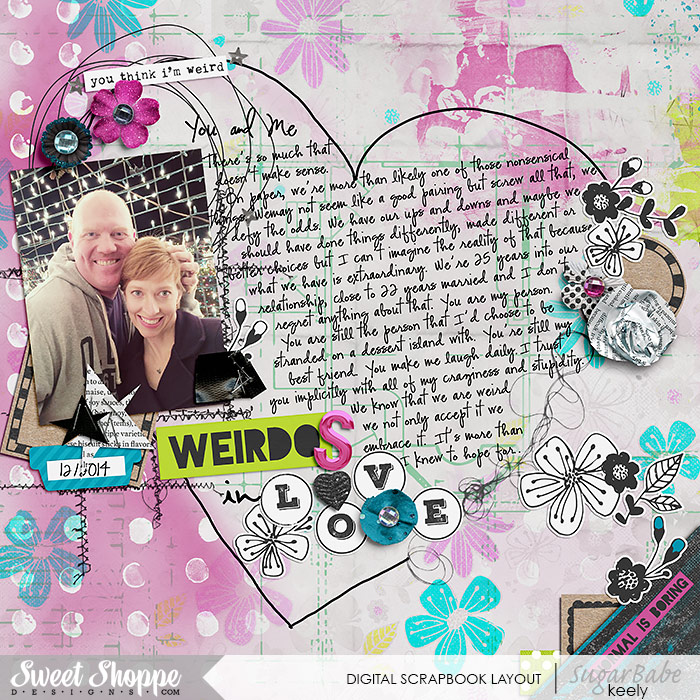 you think i'm weird
You and Me
There's so much that
doesn't make sense.
On paper, we're more than likely one of those nonsensical
things. We may not seem like a good pairing but screw all that, we
defy the odds. We have our ups and downs and maybe we
should have done things differently, made different or
better choices but I can't imagine the reality of that because
what we have is extraordinary. We're 25 years into our
relationship, close to 22 years married and I don't
regret anything about that. You are my person.
You are still the person that I'd choose to be
stranded on a dessert island with. You're still my
best friend. You make me laugh daily. I trust
you implicitly with all of my craziness and stupidity.
We know that we are weird
we not only accept it we
embrace it. It's more than
I knew to hope for.
WEIRDOS
12/2014
in
LOVE
MAL IS BORING
Sweet Shoppe
DESIGNS.COM
DIGITAL SCRAPBOOK LAYOUT
SugarBabe
keely